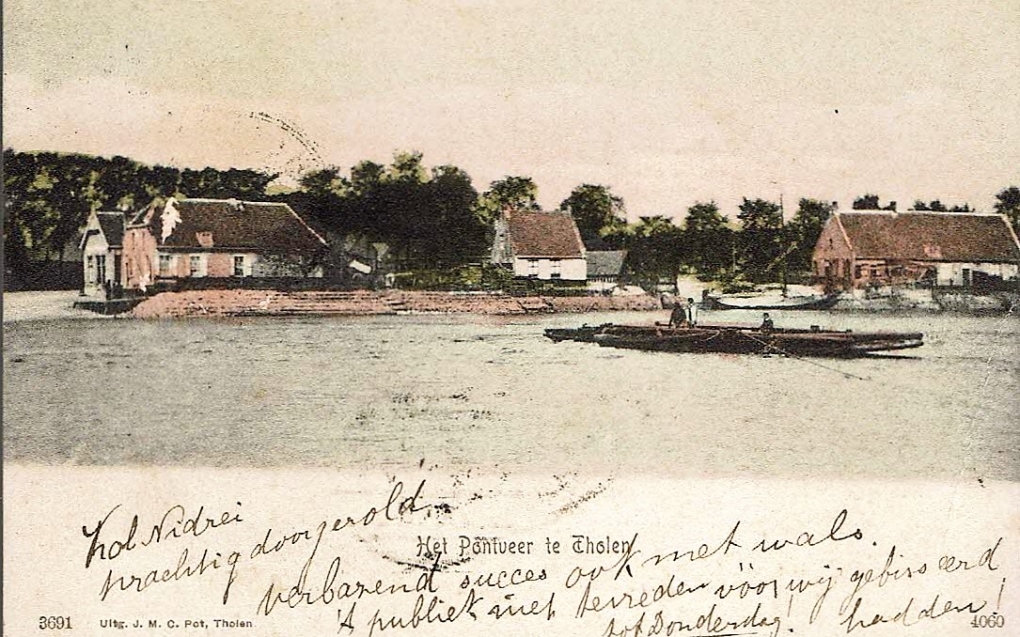 Kol Nidrei
prachtig doorgerold.
Het Pontveer te Tholen
verbazend succes ook met wals.
't publiek niet tevreden vóór wij gebisseerd
tot Donderdag! hadden!
3691 Uitg. J. M. C. Pot, Tholen
4060